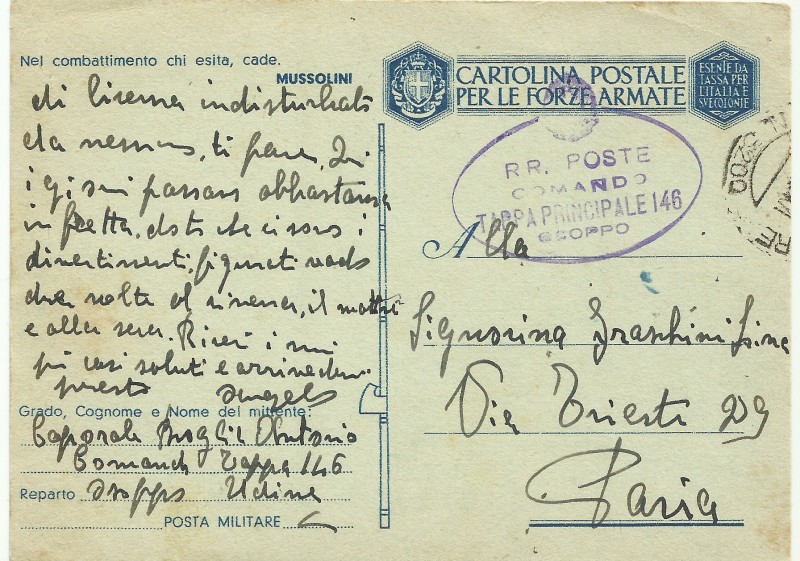 Nel combattimento chi esita, cade.
MUSSOLINI
di licenza indisturbato
da nessuno, ti pare. Qui
i giorni passano abbastanza
in fretta, dato che ci sono i
divertimenti, figurati vado
due volte al cinema, il mattino
e alla sera. Ricevi i miei
più cari saluti e arrivederci
presto Angelo
Grado, Cognome e Nome del mittente:
Caporale Broglia Antonio
Comando Tappa 146
Reparto Osoppo Udine
POSTA MILITARE
CARTOLINA POSTALE
PER LE FORZE ARMATE
ESENTE DA
TASSA PER
L'ITALIA E
SUE COLONIE
RR. POSTE
COMANDO
TAPPA PRINCIPALE 146
OSOPPO
Alla
Signorina Braschini Lina
Via Trieste 29
Pavia